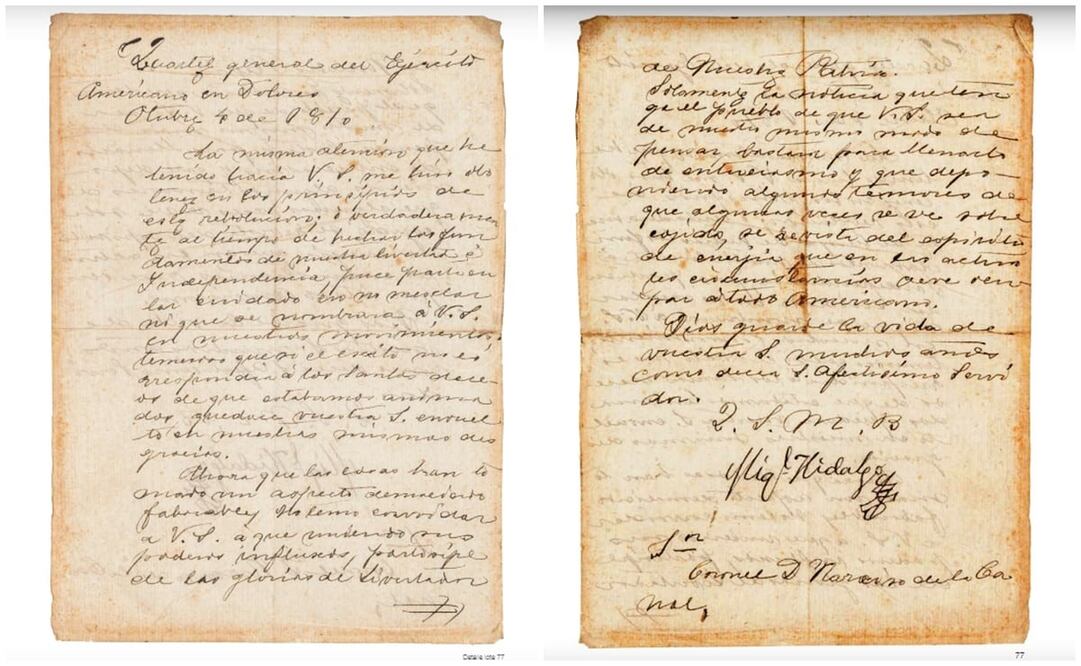 Quartel general del Ejército
Américano en Dolores
Otubre 4 de 1810
La misma atención que he
tenido hacia V. S. me hiso obs
tener en los principios de
esta rebolucion; ó verdaderamen
te al tiempo de hechar los fun
damentos de nuestra livertad é
Independencia, puce particu
lar cuidado en no mesclar
ni que se nombrara á V. S.
en nuestros movimientos,
temeroso que si el exito no co
rrespondia á los Santos dece
os de que estabamos anima
dos, quedace vuestra S. envuel
to en nuestras mismas des
gracias.
Ahora que las cosas han to
mado un aspecto demaciado
fabrable y no temo convidar
a V. S. a que uniendo sus
poderos influxos, participe
de las glorias de Livertador
Detalle lote 77
de Nuestra Patria.
Solamente la noticia que ten
ga el pueblo de que V. S. sea
de nuestro mismo modo de
pensar, bastará para llenarlo
de entuciasmo y que depo-
niendo algunos temores de
que algunas veces se ve sobre
cojido, se revista del espiritu
de énergia que en las actua
les circunstancias deve ocu
par á todo Américano.
Dios guarde la vida de
vuestra S. muchos años
como decea S. Afectisimo Servi
dor.
Q. S. M. B
Migl. Hidalgo
Sor
Coronel D. Narciso de la Ca
nal,
77